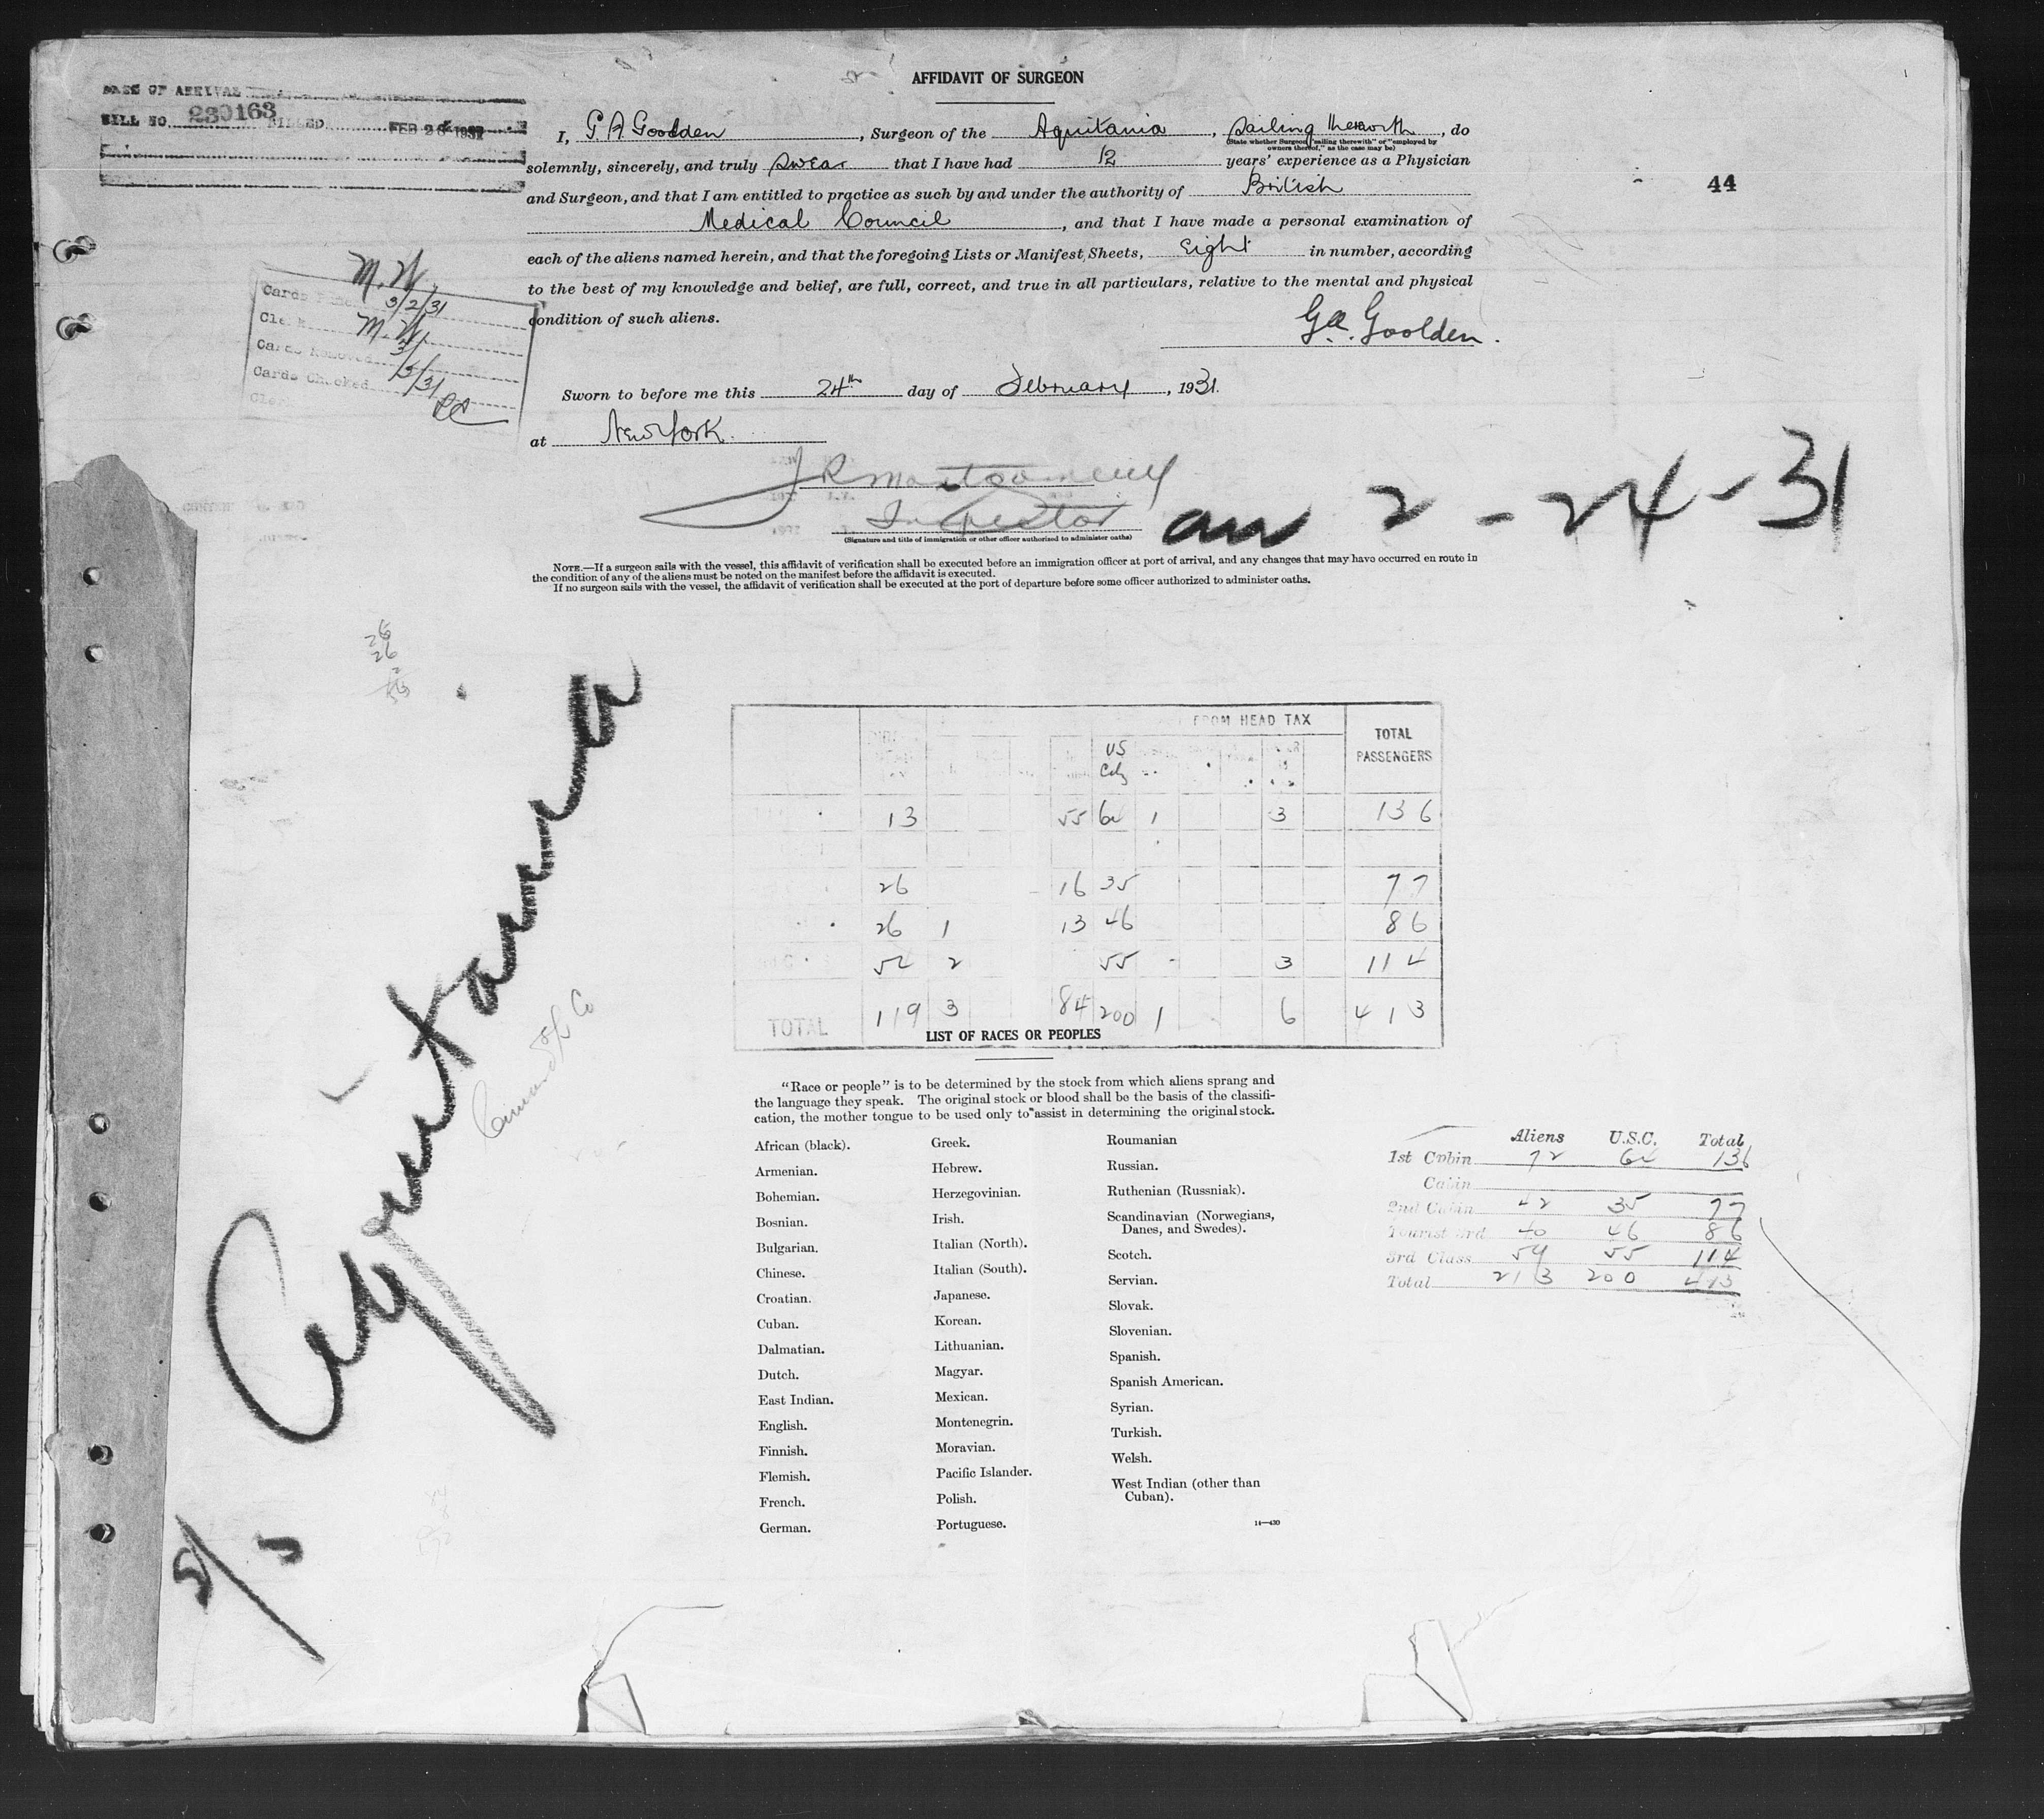 AFFIDAVIT OF SURGEON
DATE OF ARRIVAL
BILL NO. 230163 FILLED FEB 26 1931
44
I, G.A. Goolden, Surgeon of the Aquitania, sailing therewith, do
(State whether Surgeon "sailing therewith" or "employed by
owners thereof," as the case may be)
solemnly, sincerely, and truly swear that I have had 12 years' experience as a Physician
and Surgeon, and that I am entitled to practice as such by and under the authority of British
Medical Council, and that I have made a personal examination of
each of the aliens named herein, and that the foregoing Lists or Manifest Sheets, Eight in number, according
to the best of my knowledge and belief, are full, correct, and true in all particulars, relative to the mental and physical
condition of such aliens.
G.A. Goolden.
M.W.
Cards 3/2/31
Clerk M.W.
Cards Removed 3/
Cards Checked 5/31
Clerk
Sworn to before me this 24th day of February, 1931.
at New York.
J R Montgomery
Inspector
(Signature and title of immigration or other officer authorized to administer oaths)
arr 2-24-31
NOTE.—If a surgeon sails with the vessel, this affidavit of verification shall be executed before an immigration officer at port of arrival, and any changes that may have occurred en route in
the condition of any of the aliens must be noted on the manifest before the affidavit is executed.
If no surgeon sails with the vessel, the affidavit of verification shall be executed at the port of departure before some officer authorized to administer oaths.
26
26
S/S Aquitania
Cunard SS Co
FROM HEAD TAX
TOTAL
PASSENGERS
US
13 55 64 1 3 136
26 16 35 77
26 1 13 46 86
54 2 55 3 114
TOTAL 119 3 84 200 1 6 413
LIST OF RACES OR PEOPLES
"Race or people" is to be determined by the stock from which aliens sprang and
the language they speak. The original stock or blood shall be the basis of the classifi-
cation, the mother tongue to be used only to assist in determining the original stock.
African (black).
Armenian.
Bohemian.
Bosnian.
Bulgarian.
Chinese.
Croatian.
Cuban.
Dalmatian.
Dutch.
East Indian.
English.
Finnish.
Flemish.
French.
German.
Greek.
Hebrew.
Herzegovinian.
Irish.
Italian (North).
Italian (South).
Japanese.
Korean.
Lithuanian.
Magyar.
Mexican.
Montenegrin.
Moravian.
Pacific Islander.
Polish.
Portuguese.
Roumanian
Russian.
Ruthenian (Russniak).
Scandinavian (Norwegians,
Danes, and Swedes).
Scotch.
Servian.
Slovak.
Slovenian.
Spanish.
Spanish American.
Syrian.
Turkish.
Welsh.
West Indian (other than
Cuban).
14—430
Aliens U.S.C. Total
1st Cabin 72 64 136
Cabin
2nd Cabin 42 35 77
Tourist 3rd 40 46 86
3rd Class 59 55 114
Total 213 200 413